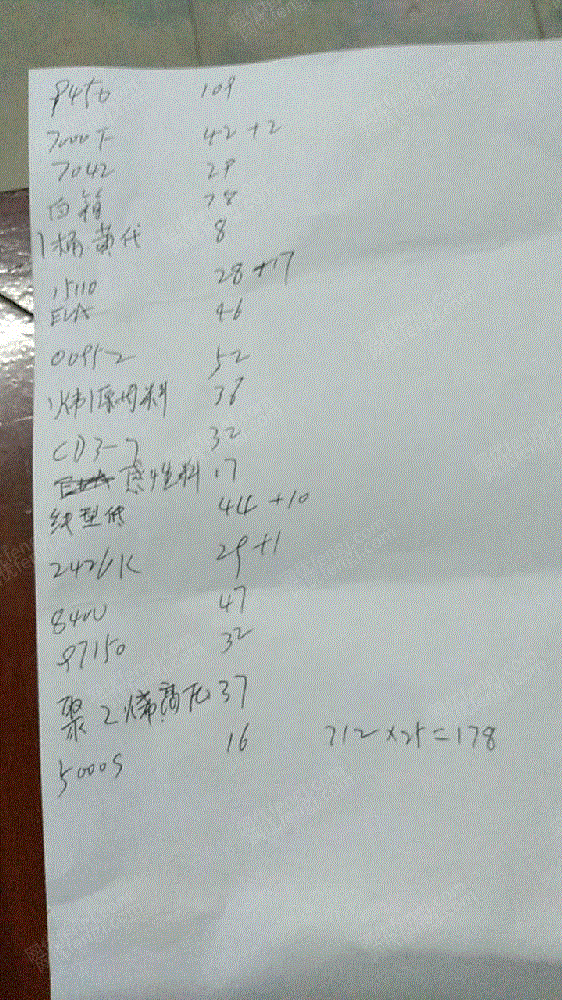 9450 109
7000F 42+2
7042 29
白箱 78
1桶黄代 8
15110 28+17
EVA 46
00952 52
料 38
CD3-7 32
料 17
线型 44+10
2426K 29+1
8400 47
97150 32
聚乙烯高压 37
5000S 16 712×25=178